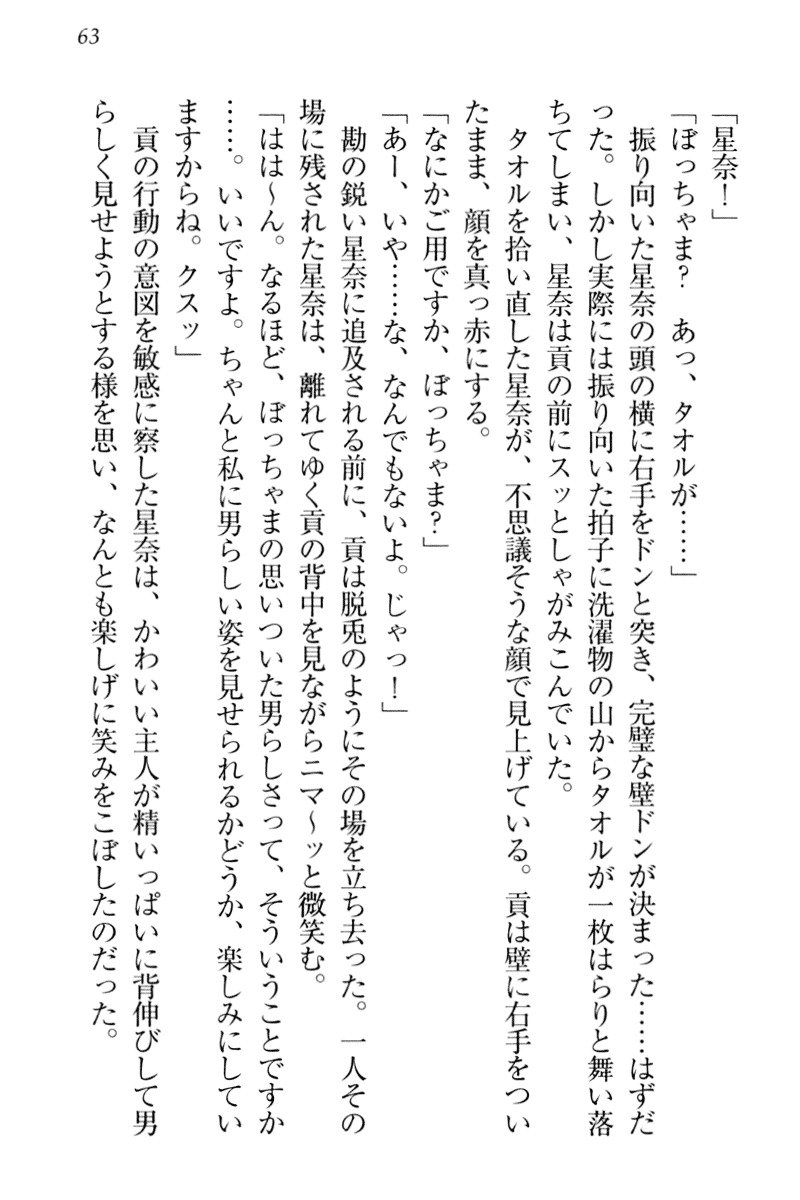 63
「星奈！」
「ぼっちゃま？　あっ、タオルが……」
　振り向いた星奈の頭の横に右手をドンと突き、完璧な壁ドンが決まった……はずだ
った。しかし実際には振り向いた拍子に洗濯物の山からタオルが一枚はらりと舞い落
ちてしまい、星奈は貢の前にスッとしゃがみこんでいた。
　タオルを拾い直した星奈が、不思議そうな顔で見上げている。貢は壁に右手をつい
たまま、顔を真っ赤にする。
「なにかご用ですか、ぼっちゃま？」
「あー、いや……な、なんでもないよ。じゃっ！」
　勘の鋭い星奈に追及される前に、貢は脱兎のようにその場を立ち去った。一人その
場に残された星奈は、離れてゆく貢の背中を見ながらニマ～ッと微笑む。
「はは～ん。なるほど、ぼっちゃまの思いついた男らしさって、そういうことですか
……。いいですよ。ちゃんと私に男らしい姿を見せられるかどうか、楽しみにしてい
ますからね。クスッ」
　貢の行動の意図を敏感に察した星奈は、かわいい主人が精いっぱいに背伸びして男
らしく見せようとする様を思い、なんとも楽しげに笑みをこぼしたのだった。